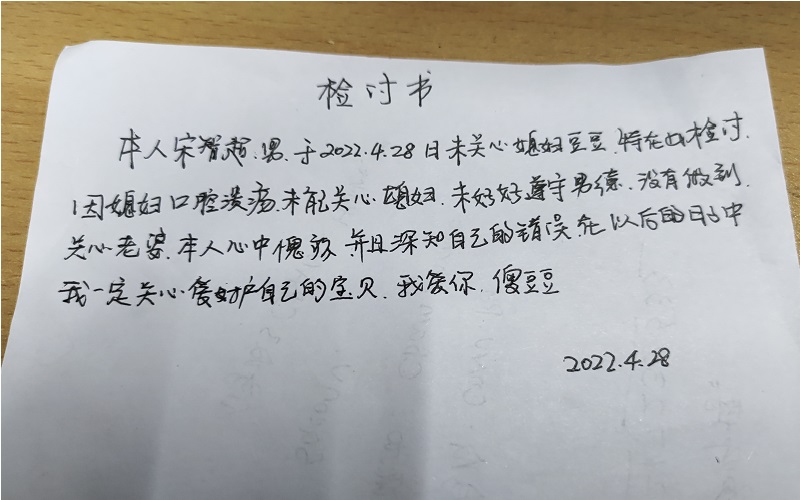 检讨书
本人宋智超.男.于2022.4.28日未关心媳妇豆豆.特在此检讨.
因媳妇口腔溃疡.未能关心媳妇.未好好遵守男德.没有做到.
关心老婆.本人心中愧疚.并且深知自己的错误.在以后的日子中
我一定关心爱护自己的宝贝.我爱你.傻豆豆
2022.4.28